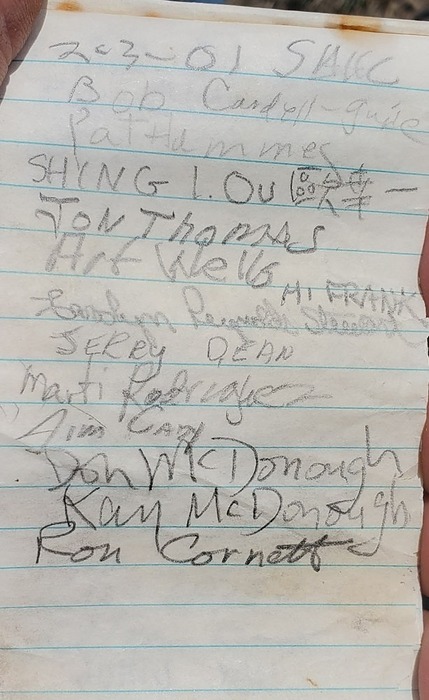 2-3-01 SHCC
Bob Cardell-
Pat Hammes
SHYNG I. OU
JON Thomas
Art Wells
HI FRANK
Carolyn Reynolds
JERRY DEAN
Marti Rodriguez
Jim Cary
Don McDonough
Kay McDonough
Ron Cornett